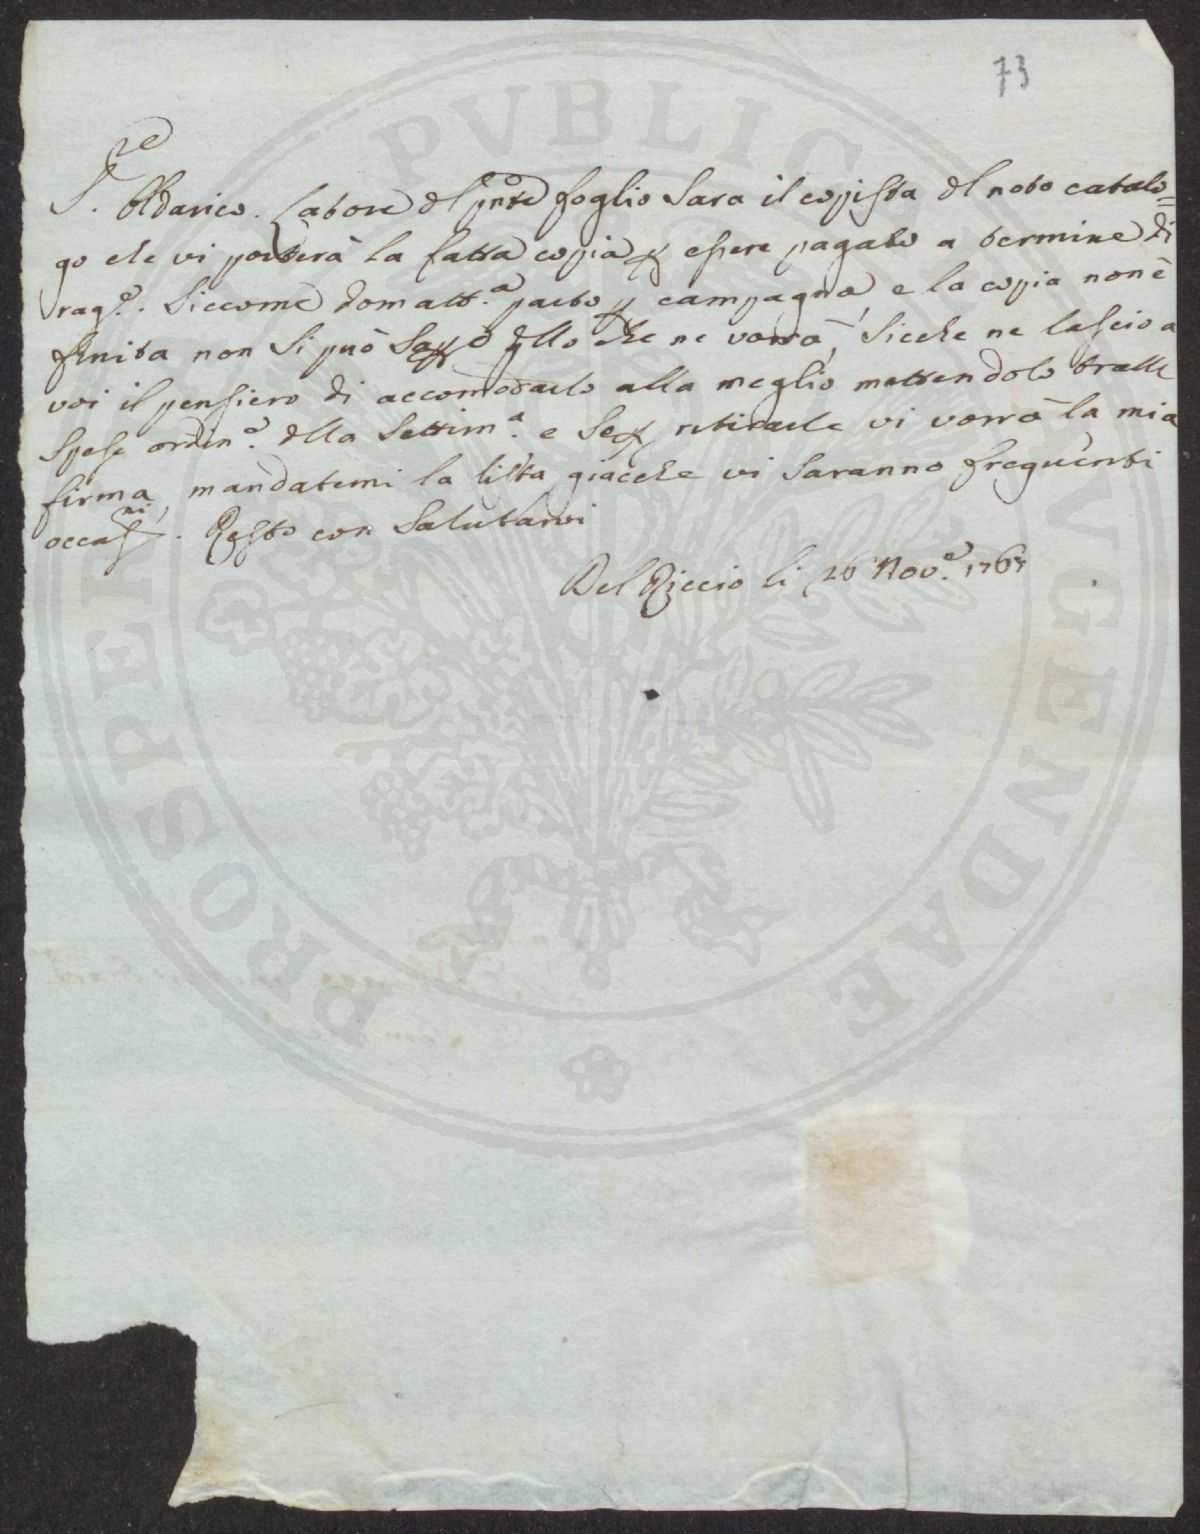 73
F.re Oldarico. Latore del pnte foglio Sara il copista del noto catalo=
go che vi porterà la fatta copia p essere pagato a termine di
rag.e. Siccome domatt.a parto p campagna, e la copia non è
finita non Si può Sapere qllo che ne vorrà, Sicche ne lascio a
voi il pensiero di accomodarlo alla meglio mettendolo tralle
Spese ordin.e della Settim.a e Se p ritirarle vi vorrà la mia
firma, mandatemi la lista giacche vi Saranno frequenti
occas.ni. Resto con Salutarvi
Del Riccio li 26 Nov.e 1767
PROSPERITATI PVBLICAE AVGENDAE